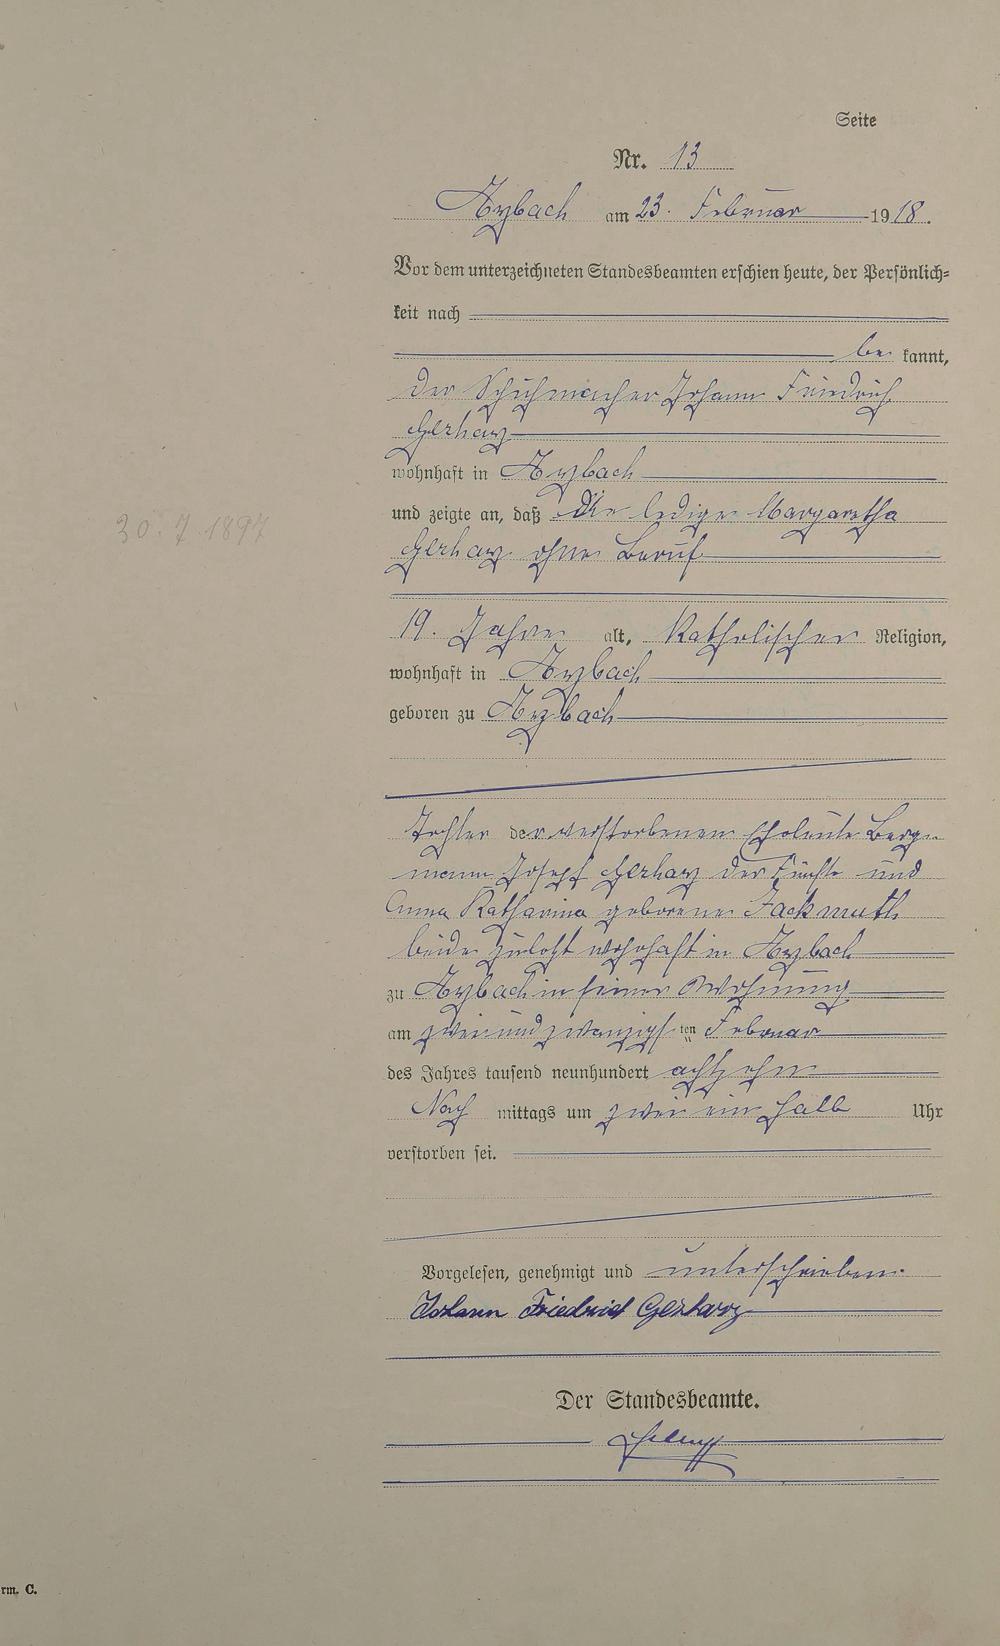 Seite
Nr. 13
Arzbach am 23. Februar 1918.
Vor dem unterzeichneten Standesbeamten erschien heute, der Persönlich=
keit nach
be kannt,
der Schuhmacher Johann Friedrich
Gerharz
wohnhaft in Arzbach
und zeigte an, daß die ledige Margaretha
Gerharz ohne Beruf
19. Jahre alt, Katholischer Religion,
wohnhaft in Arzbach
geboren zu Arzbach
Tochter der verstorbenen Eheleute Berg-
mann Josef Gerharz der Fünfte und
Anna Katharina geborene Jackmuth
beide zuletzt wohnhaft in Arzbach
zu Arzbach in seiner Wohnung
am zwei und zwanzigs ten Februar
des Jahres tausend neunhundert achtzehn
Nach mittags um zwei ein halb Uhr
verstorben sei.
Vorgelesen, genehmigt und unterschrieben.
Johann Friedrich Gerharz
Der Standesbeamte.
30 7 1897
rm. C.